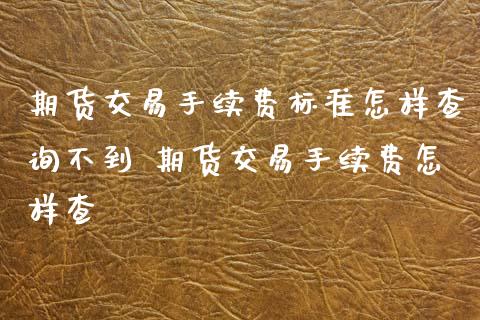 期货交易手续费标准怎样查
询不到 期货交易手续费怎
样查